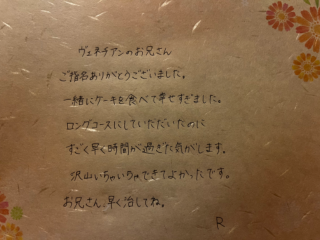 ヴェネチアンのお兄さん
ご指名ありがとうございました。
一緒にケーキを食べて幸せすぎました。
ロングコースにしていただいたのに
すごく早く時間が過ぎた気がします。
沢山いちゃいちゃできてよかったです。
お兄さん、早く治してね。
R